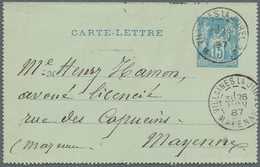 CARTE-LETTRE
15
VILLAINES LA JUHEL
Me Henry Hamon,
avoué licencié
rue des Capucins
Mayenne
(Mayenne
VILLAINES LA JUHEL
26
87
MAYENNE